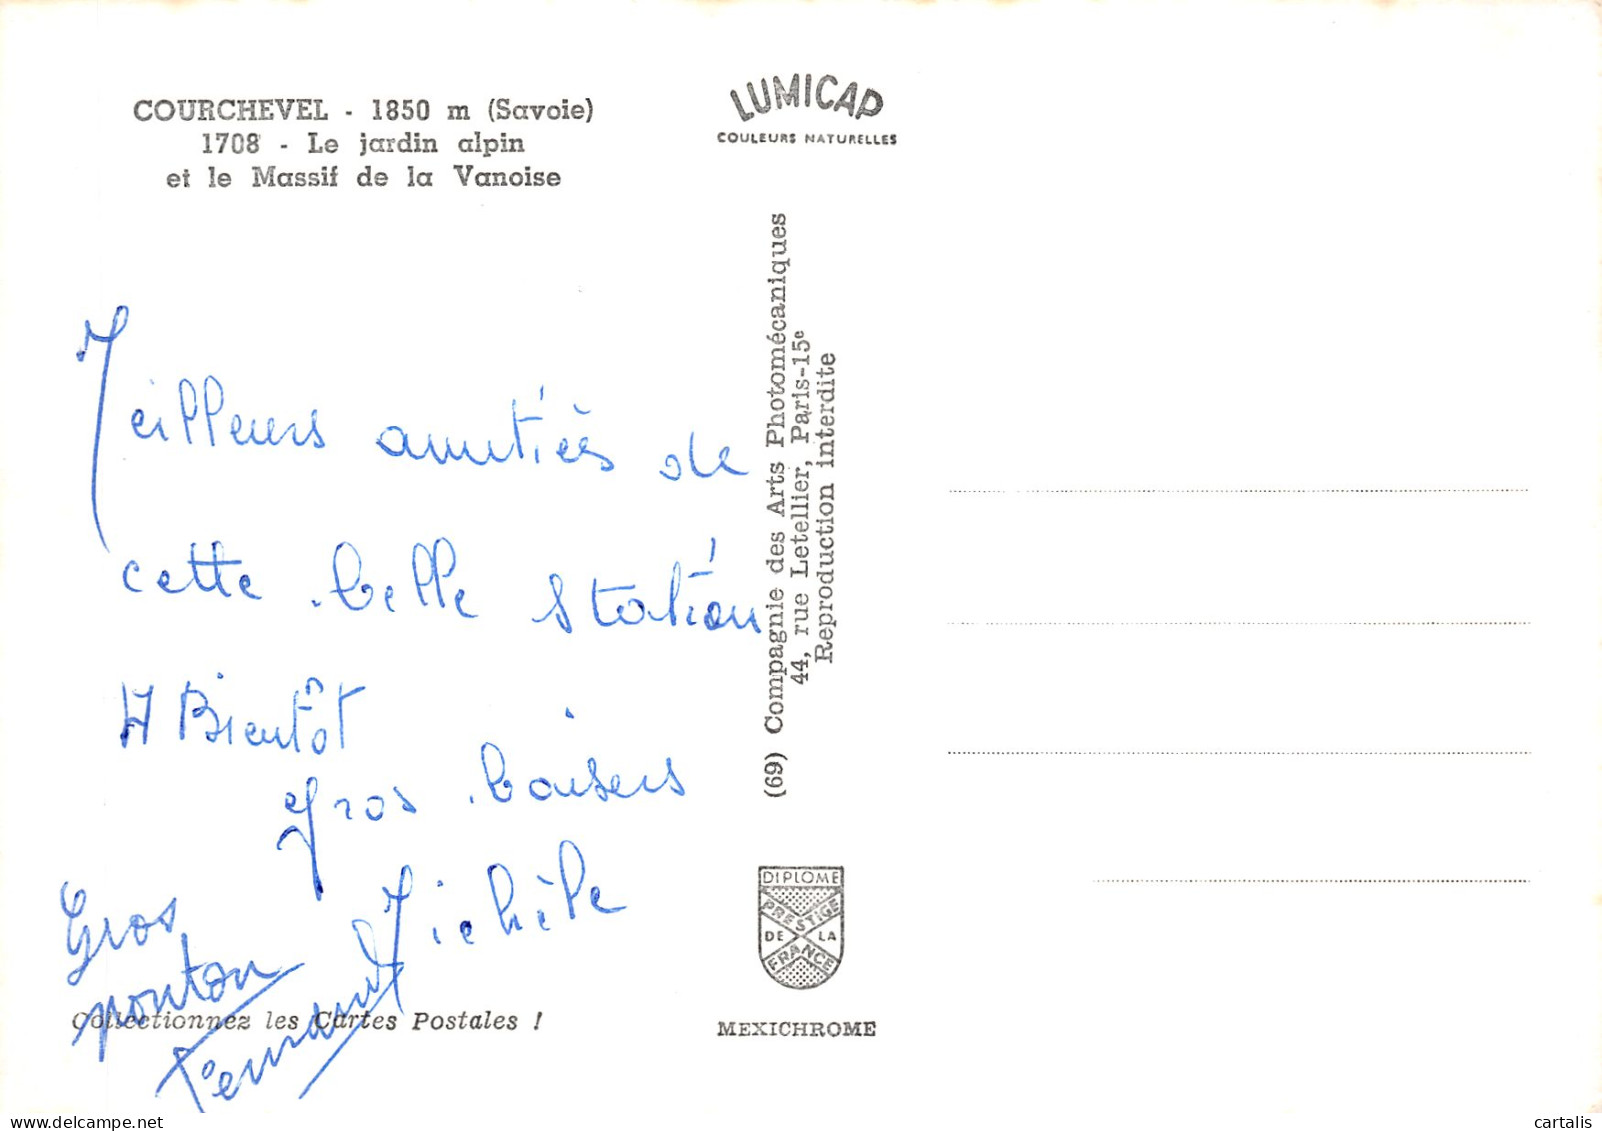 COURCHEVEL - 1850 m (Savoie)
1708 - Le jardin alpin
et le Massif de la Vanoise
LUMICAP
COULEURS NATURELLES
Meilleurs amitiés de
cette belle station
A Bientôt
gros baisers
Michèle
Gros
Fernand
(69) Compagnie des Arts Photomécaniques
44, rue Letellier, Paris-15e
Reproduction interdite
DIPLOME
PRESTIGE
DE LA
FRANCE
Collectionnez les Cartes Postales !
MEXICHROME
cartalis
www.delcampe.net